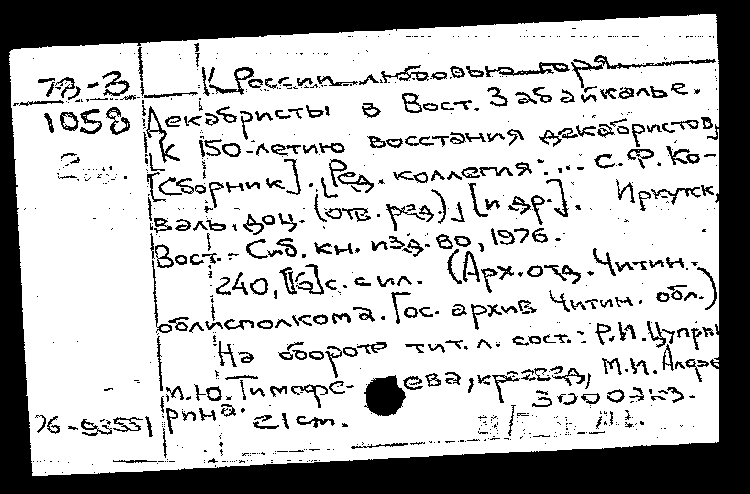 78-3 К России любовью горя
1058 Декабристы в Вост. Забайкалье.
[К 150-летию восстания декабристов,
2 Сборник]. [Ред. коллегия: ... С.Ф. Ко-
валь, доц. (отв. ред.), [и др.]. Иркутск,
Вост.-Сиб. кн. изд-во, 1976.
240, [16] с. с ил. (Арх. отд. Читин.
облисполкома. Гос. архив Читин. обл.)
На обороте тит. л. сост.: Р.И. Цупри
М.Ю. Тимофе- ева, краевед, М.И. Алфе
рина. 21 см. 3000 экз.
76-93551